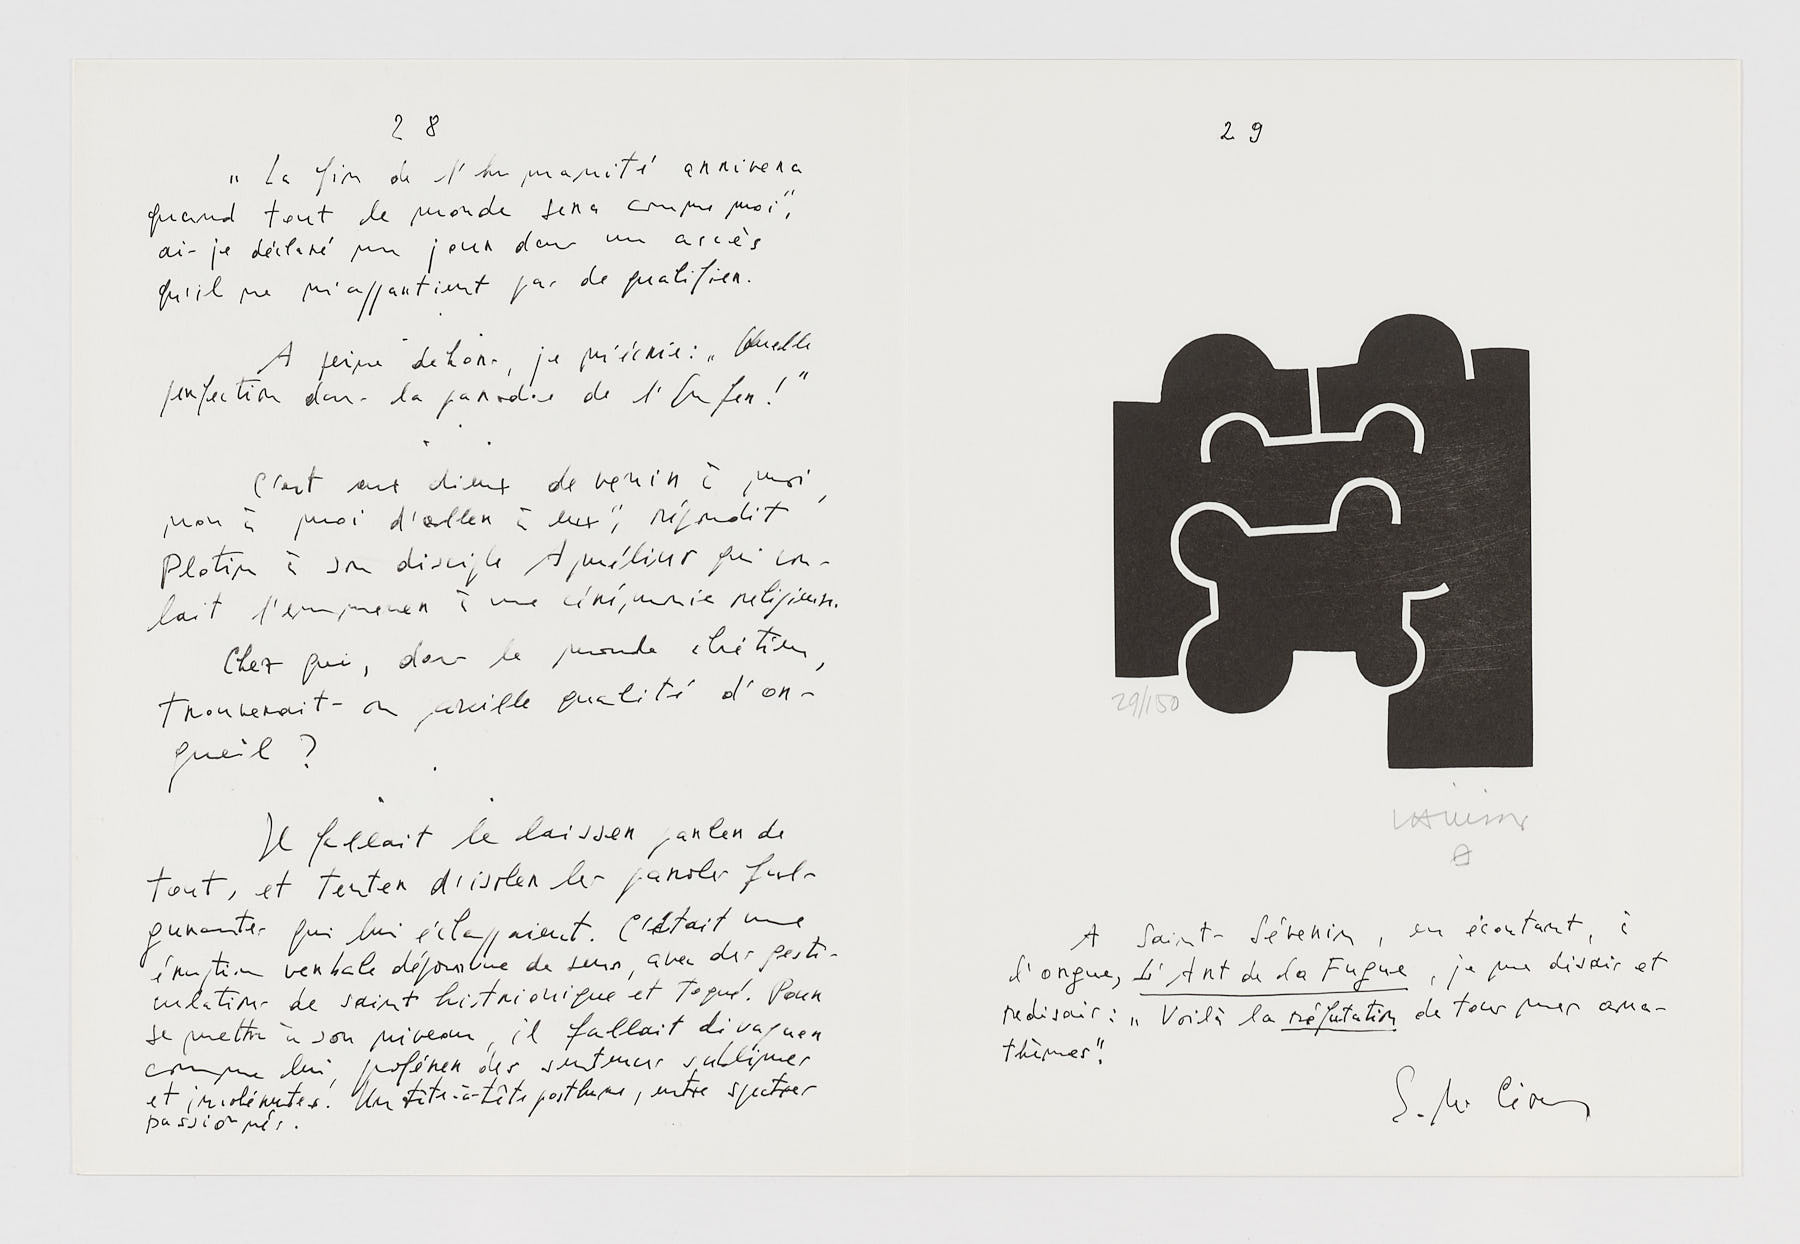 28
„ La fin de l'humanité arrivera
quand tout le monde sera comme moi",
ai-je déclaré un jour dans un accès
qu'il ne m'appartient pas de qualifier.
A peine dehors, je m'écrie: „ Quelle
perfection dans la parodie de l'Enfer! "
C'est aux dieux de venir à moi,
non à moi d'aller à eux", répondit
Plotin à son disciple Amélius qui vou-
lait l'emmener à une cérémonie religieuse.
Chez qui, dans le monde chrétien,
trouverait-on pareille qualité d'or-
gueil ?
Il fallait le laisser parler de
tout, et tenter d'isoler les paroles ful-
gurantes qui lui échappaient. C'était une
éruption verbale dépourvue de sens, avec des gesti-
culations de saint histrionique et toqué. Pour
se mettre à son niveau, il fallait divaguer
comme lui, proférer des sentences sublimes
et incohérentes. Un tête-à-tête posthume, entre spectres
passionnés.
29
29/150
Chillida
A Saint-Séverin, en écoutant, à
l'orgue, L'Art de la Fugue, je me disais et
redisais: „ Voilà la réfutation de tous mes ana-
thèmes".
E. M. Cioran